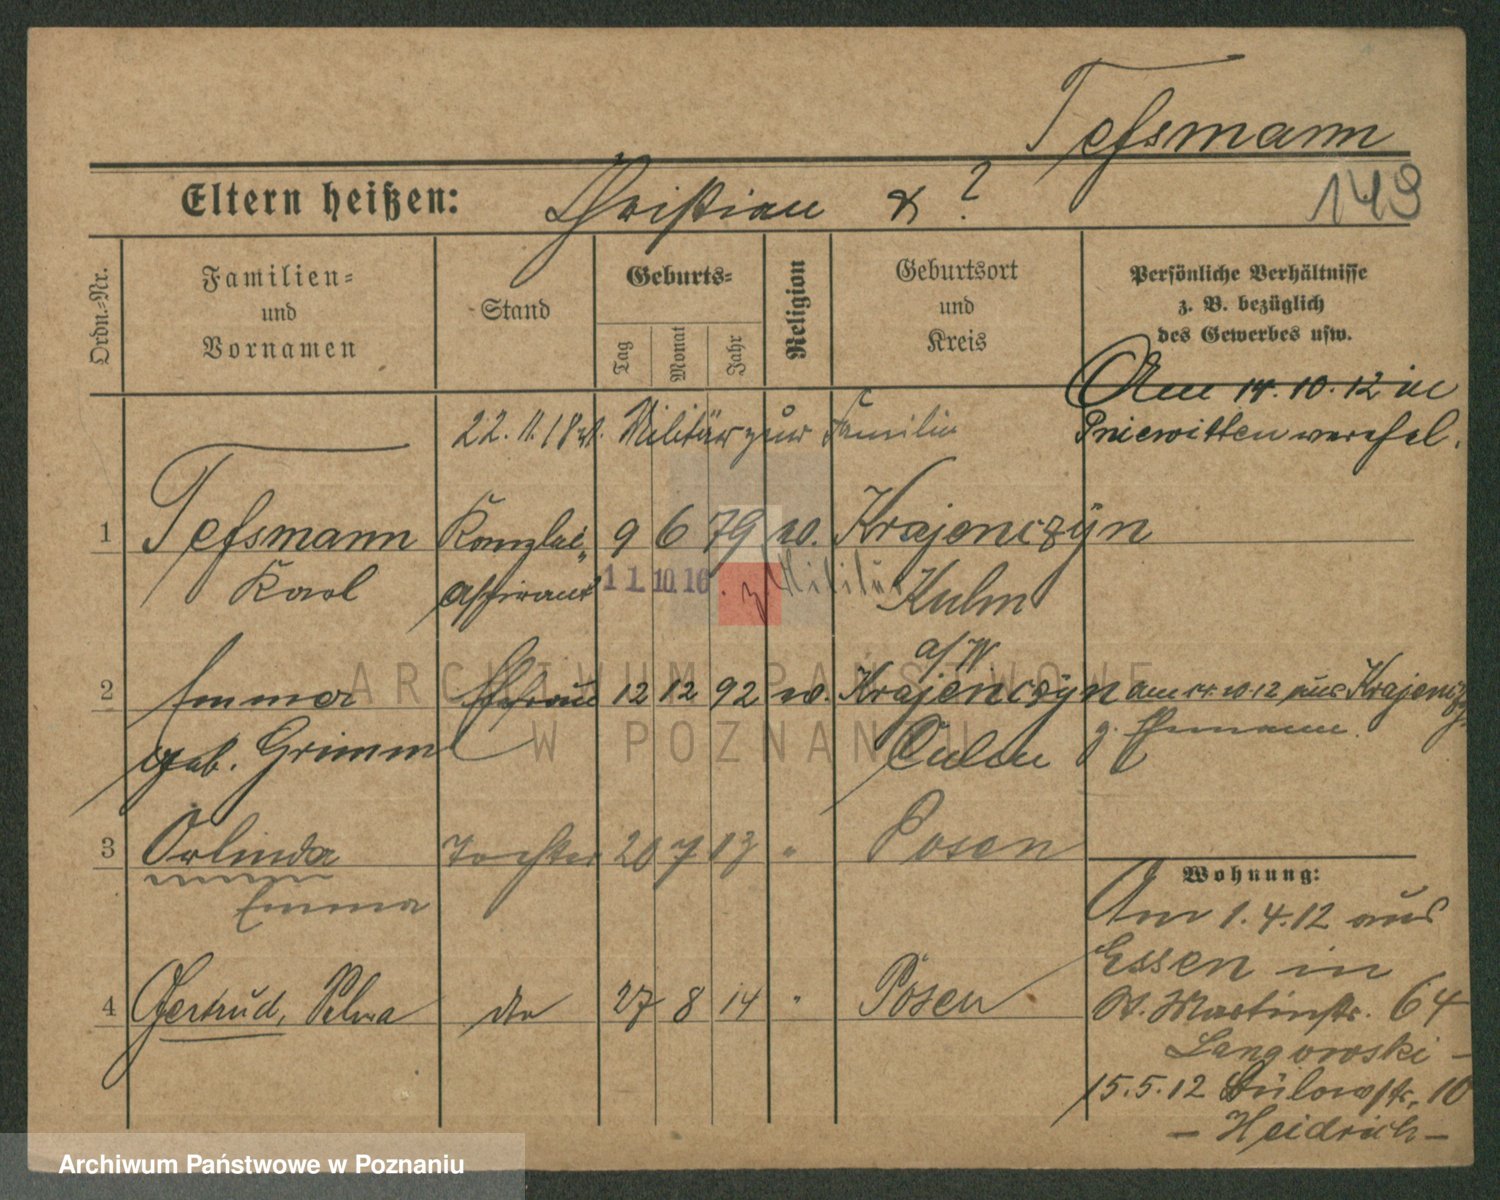 Tessmann
149
Eltern heißen: Christian & ?
Ordn.-Nr.
Familien- und Vornamen
Stand
Geburts-
Tag
Monat
Jahr
Religion
Geburtsort und Kreis
Persönliche Verhältnisse
z. B. bezüglich
des Gewerbes usw.
Am 14.10.12 in
Pniewitten verehel.
Militär zur Familie
1 Tessmann Kanzlei- 9 6 79 ev. Krajenczyn
Karl aspirant 11.10.16. z. Militär Kulm
a/W.
2 Emma Ehefrau 12 12 92 ev. Krajenczyn am 14.10.12 aus Krajenczyn
geb. Grimm Culm z. Ehemann.
3 Orlinda Tochter 20 7 13 " Posen
Emma
4 Gertrud, Selma dto 27 8 14 " Posen
Wohnung:
Am 1.4.12 aus
Essen in
St. Martinstr. 64
Langowski -
15.5.12 Bülowstr. 10
- Heidrich -
ARCHIWUM PAŃSTWOWE
W POZNANIU
Archiwum Państwowe w Poznaniu